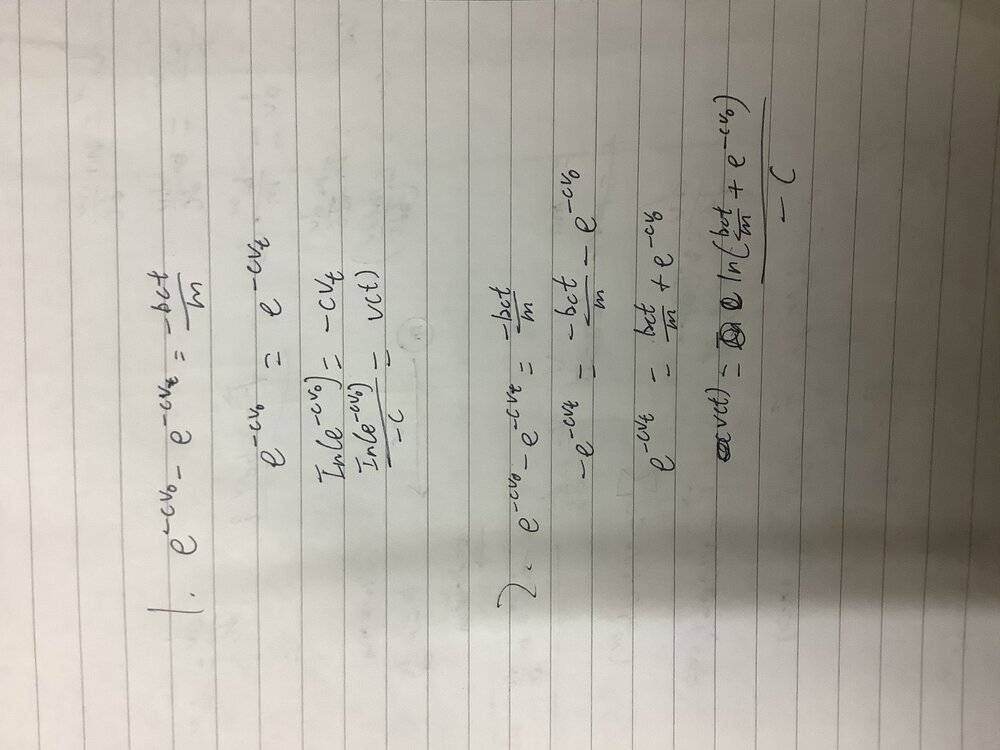 1. e^{-cv_0} - e^{-cv_t} = \frac{-bct}{m}
e^{-cv_0} = e^{-cv_t}
In(e^{-cv_0}) = -cv_t
\frac{In(e^{-cv_0})}{-c} = v(t)
2. e^{-cv_0} - e^{-cv_t} = \frac{-bct}{m}
-e^{-cv_t} = \frac{-bct}{m} - e^{-cv_0}
e^{-cv_t} = \frac{bct}{m} + e^{-cv_0}
v(t) = \frac{ln(\frac{bct}{m} + e^{-cv_0})}{-c}